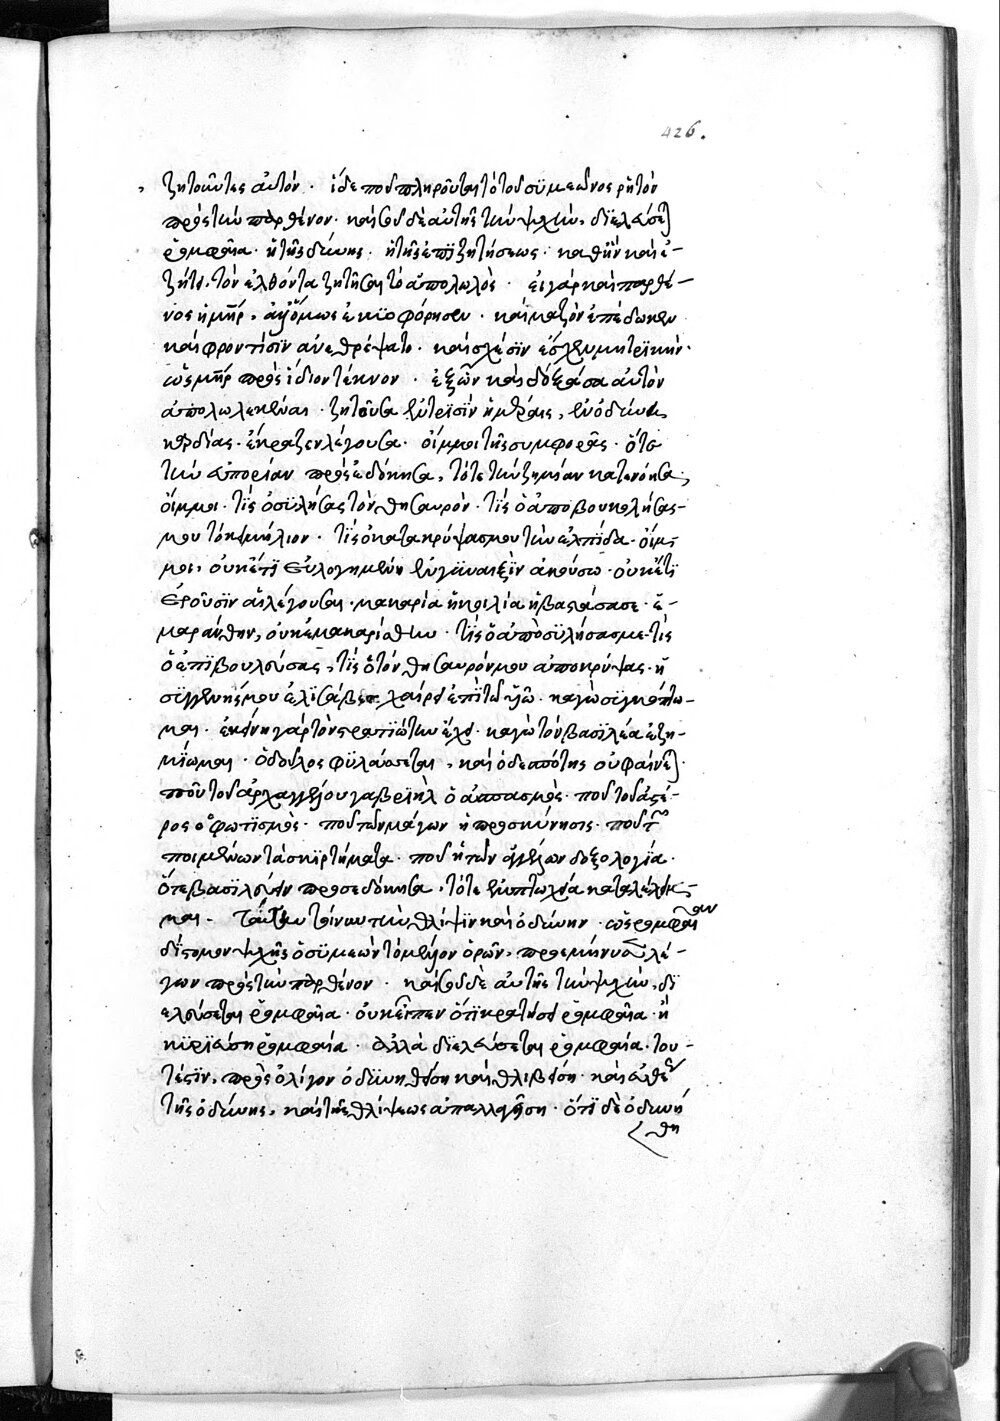 426.
ζητοῦντες αὐτόν · ἴδε ποῦ πληροῦται τὸ τοῦ συμεῶνος ρητὸν
πρὸς τὴν παρθένον · καὶ σοῦ δὲ αὐτῆς τὴν ψυχὴν, διελεύσεται
ῥομφαία · ἡ τῆς ὀδύνης · ἡ τῆς ἐπιζητήσεως · καθ' ἣν καὶ ἐ-
ζήτει τὸν ἐλθόντα ζητῆσαι τὸ ἀπολωλὸς · εἰ γὰρ καὶ παρθέ-
νος ἡ μήτηρ, ἀλλ' ὅμως ἐκυοφόρησεν · καὶ μαζὸν ἐπέδωκεν
καὶ φροντίσιν ἀνεθρέψατο · καὶ σχέσιν ἔσχεν μητρικὴν ·
ὡς μήτηρ πρὸς ἴδιον τέκνον · ἐξ ὧν καὶ δόξασα αὐτὸν
ἀπολωλεκέναι · ζητοῦσα ἐν τρισὶν ἡμέραις, ἐν ὀδύναις
καρδίας · ἔκραξεν λέγουσα · οἴμμοι τῆς συμφορᾶς · ὅτε
τὴν εὐπορίαν προσεδόκησα, τότε τὴν ζημίαν κατενόησα ·
οἴμμοι · τίς ὁ συλήσας τὸν θησαυρόν · τίς ὁ ἀποβουκολήσας
μου τὸ κειμήλιον · τίς ὁ κατακρύψας μου τὴν ἐλπίδα · οἴμ-
μοι, οὐκέτι εὐλογημένη ἐν γυναιξὶν ἀκούσω · οὐκέτι
ἐροῦσιν αἱ λέγουσαι · μακαρία ἡ κοιλία ἡ βαστάσασα σε · ἐ-
μαράνθην, οὐκ ἐμακαρίσθην · τίς ὁ ἀποσυλήσας με · τίς
ὁ ἐπιβουλεύσας, τίς ὁ τὸν θησαυρόν μου ἀποκρύψας · ἡ
συγγενής μου ἐλισάβετ χαίρει ἐπὶ τῷ υἱῷ · κἀγὼ σιγκόπτο-
μαι · ἐκείνη γὰρ τὸν στρατιώτην ἔχει · κἀγὼ τὸν βασιλέα ἐζη-
μίωμαι · ὁ δοῦλος φυλάσσεται, καὶ ὁ δεσπότης οὐ φαίνεται ·
ποῦ τοῦ ἀρχαγγέλου γαβριὴλ ὁ ἀσπασμὸς · ποῦ τοῦ ἀστέ-
ρος ὁ φωτισμὸς · ποῦ τῶν μάγων ἡ προσκύνησις · ποῦ τῶν
ποιμένων τὰ σκιρτήματα · ποῦ ἡ τῶν ἀγγέλων δοξολογία ·
ὅτε βασιλεύειν προσεδόκησα, τότε ἐν πτωχεία καταλέλειμ-
μαι · ταύτην τοίνυν τὴν θλίψιν καὶ ὀδύνην · ὡς ῥομφαίαν
δίστομον ψυχῆς ὁ συμεὼν τὸ μέλλον ὁρῶν, προεμήνυσεν λέ-
γων πρὸς τὴν παρθένον · καὶ σοῦ δὲ αὐτῆς τὴν ψυχὴν, δι
ελεύσεται ῥομφαία · οὐκ εἶπεν ὅτι κρατήσει ῥομφαία · ἢ
κυριεύση ῥομφαία · ἀλλὰ διελεύσεται ῥομφαία · του-
τέστιν, πρὸς ὀλίγον ὀδυνηθήση καὶ θλιβήση · καὶ εὐθὺς
τῆς ὀδύνης, καὶ τῆς θλίψεως ἀπαλλαγήση · ὅτι δὲ ὀδυνή
θη